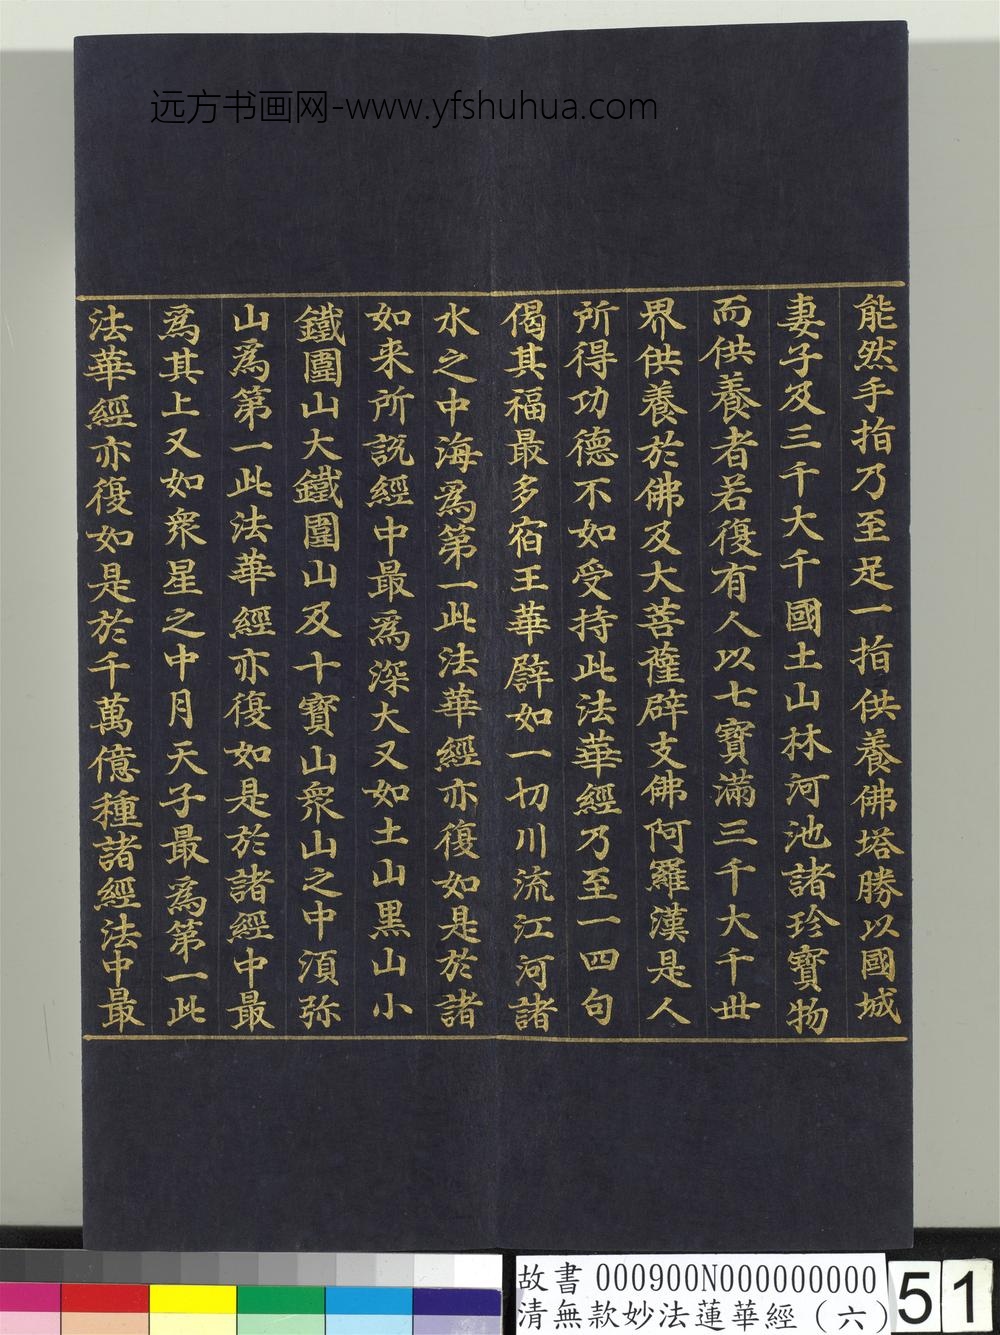 远方书画网-www.yfshuhua.com
能然手指乃至足一指供養佛塔勝以國城
妻子及三千大千國土山林河池諸珍寶物
而供養者若復有人以七寶滿三千大千世
界供養於佛及大菩薩辟支佛阿羅漢是人
所得功德不如受持此法華經乃至一四句
偈其福最多宿王華譬如一切川流江河諸
水之中海為第一此法華經亦復如是於諸
如來所說經中最為深大又如土山黑山小
鐵圍山大鐵圍山及十寶山眾山之中須弥
山為第一此法華經亦復如是於諸經中最
為其上又如眾星之中月天子最為第一此
法華經亦復如是於千萬億種諸經法中最
故書 000900N000000000
清無款妙法蓮華經（六）
51